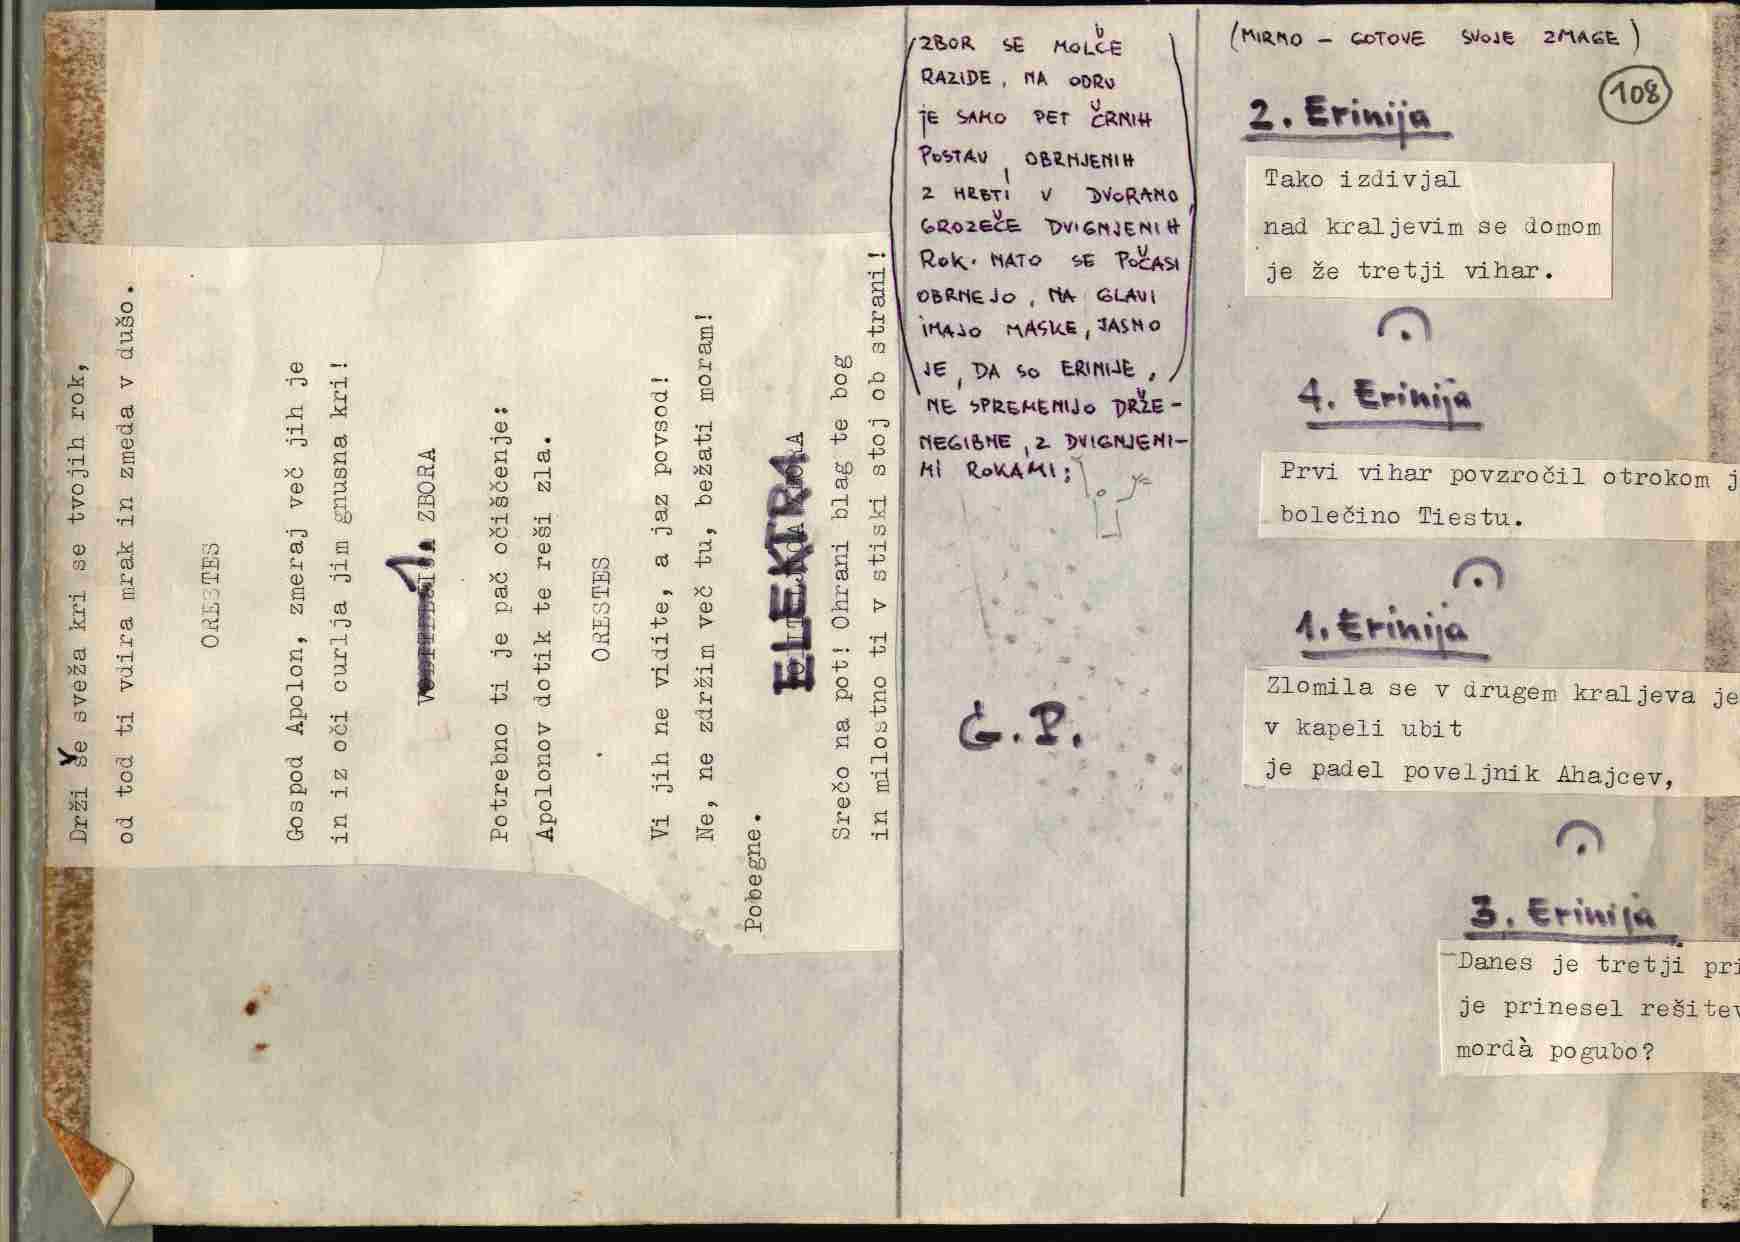 Drži še sveža kri se tvojih rok,
od tod ti vdira mrak in zmeda v dušo.
ORESTES
Gospod Apolon, zmeraj več jih je
in iz oči curlja jim gnusna kri!
1. ZBORA
Potrebno ti je pač očiščenje:
Apolonov dotik te reši zla.
ORESTES
Vi jih ne vidite, a jaz povsod!
Ne, ne zdržim več tu, bežati moram!
Pobegne.
ELEKTRA
Srečo na pot! Ohrani blag te bog
in milostno ti v stiski stoj ob strani!
(ZBOR SE MOLČE
RAZIDE, NA ODRU
JE SAMO PET ČRNIH
POSTAV, OBRNJENIH
Z HRBTI V DVORANO,
GROZEČE DVIGNJENIH
ROK. NATO SE POČASI
OBRNEJO, NA GLAVI
IMAJO MASKE, JASNO
JE, DA SO ERINIJE,)
NE SPREMENIJO DRŽE -
NEGIBNE, Z DVIGNJENI-
MI ROKAMI:
G.P.
(MIRNO - GOTOVE SVOJE ZMAGE)
108
2. Erinija
Tako izdivjal
nad kraljevim se domom
je že tretji vihar.
4. Erinija
Prvi vihar povzročil otrokom j
bolečino Tiestu.
1. Erinija
Zlomila se v drugem kraljeva je
v kapeli ubit
je padel poveljnik Ahajcev,
3. Erinija
Danes je tretji pri
je prinesel rešitev
mordà pogubo?